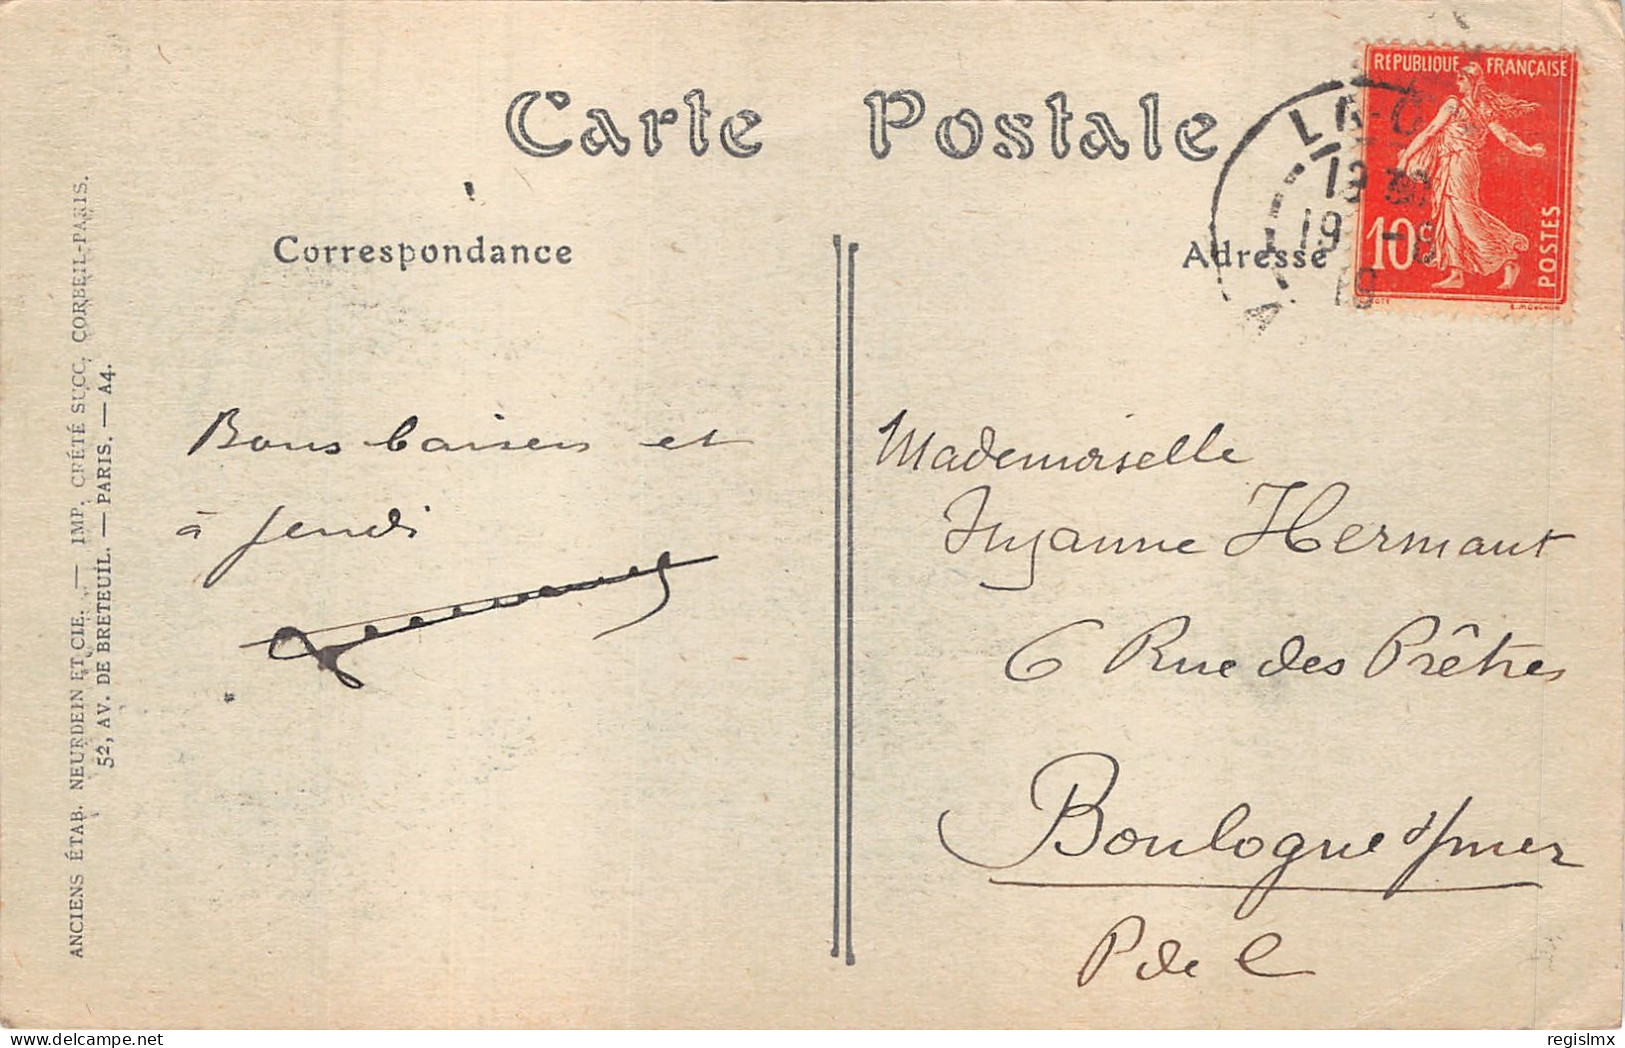 Carte Postale
Correspondance
Adresse
REPUBLIQUE FRANÇAISE
10c
POSTES
19 30
19 -8
19
ANCIENS ÉTAB. NEURDEIN ET CIE. — IMP. CRÉTÉ SUCC, CORBEIL-PARIS.
52, AV. DE BRETEUIL. — PARIS. — A4.
Bons baisers et
à jeudi
Mademoiselle
Suzanne Hermant
6 Rue des Prêtres
Boulogne s/mer
P de C
regislmx